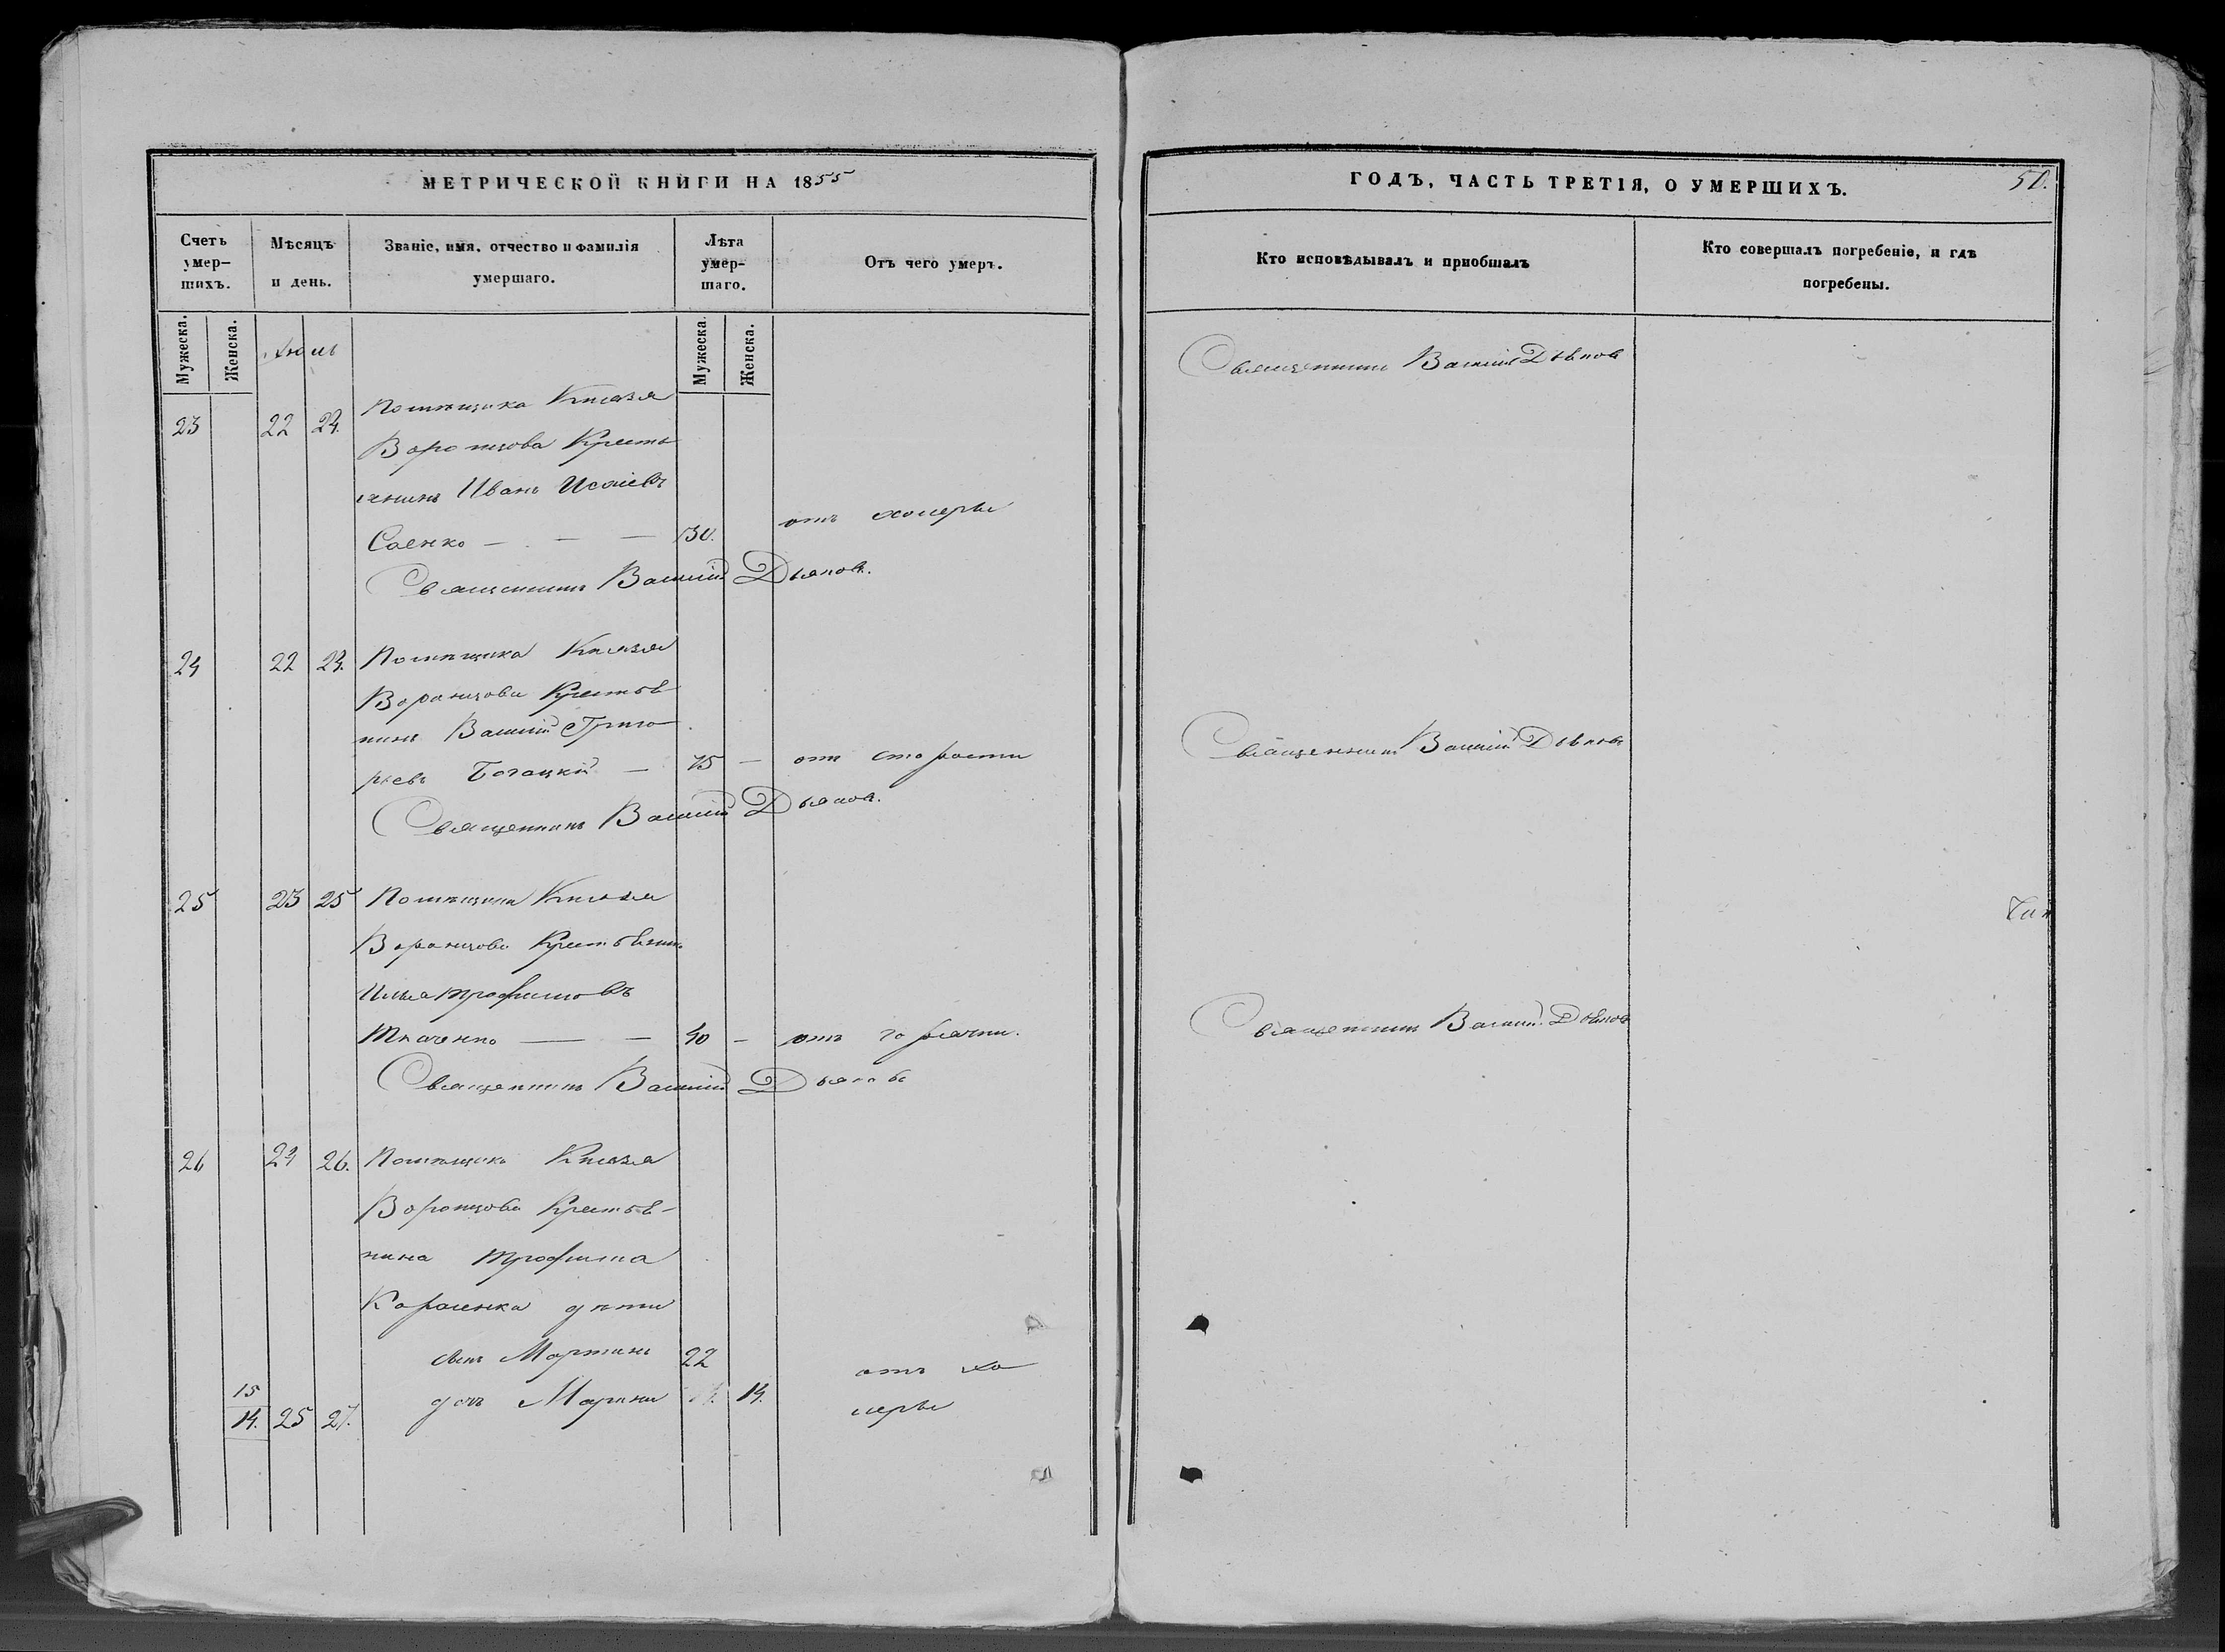 МЕТРИЧЕСКОЙ КНИГИ НА 1855
Счетъ умер-шихъ.
Мѣсяцъ и день.
Званіе, имя, отчество и фамилія умершаго.
Лѣта умер-шаго.
Отъ чего умеръ.
Мужеска.
Женска.
Мужеска
Женска.
Июль
23 22 24. Помѣщика Князя
Воронцова Кресть
янинъ Иванъ Исаіевъ
Саенко — — — 30. отъ холеры
Священникъ Василій Дьяковъ.
24 22 24. Помѣщика Князя
Воронцова Крестья
нинъ Василій Григо
рьевъ Богацкій — 75 — отъ старости
Священникъ Василій Дьяковъ.
25 23 25 Помѣщика Князя
Воронцова Крестьянин
Илья Трофимовъ
Ткаченко — — 40 — отъ горячки.
Священникъ Василій Дьяковъ
26 24 26. Помѣщика Князя
Воронцова Крестья-
нина Трофима
дѣти
сынъ Мартинъ 22 отъ хо
15
14. 25 27. дочь Марина 14. леры
ГОДЪ, ЧАСТЬ ТРЕТІЯ, О УМЕРШИХЪ.
50.
Кто исповѣдывалъ и пріобщалъ
Кто совершалъ погребеніе, и гдѣ погребены.
Священникъ Василій Дьяковъ
Священникъ Василій Дьяковъ
Священникъ Василій Дьяковъ